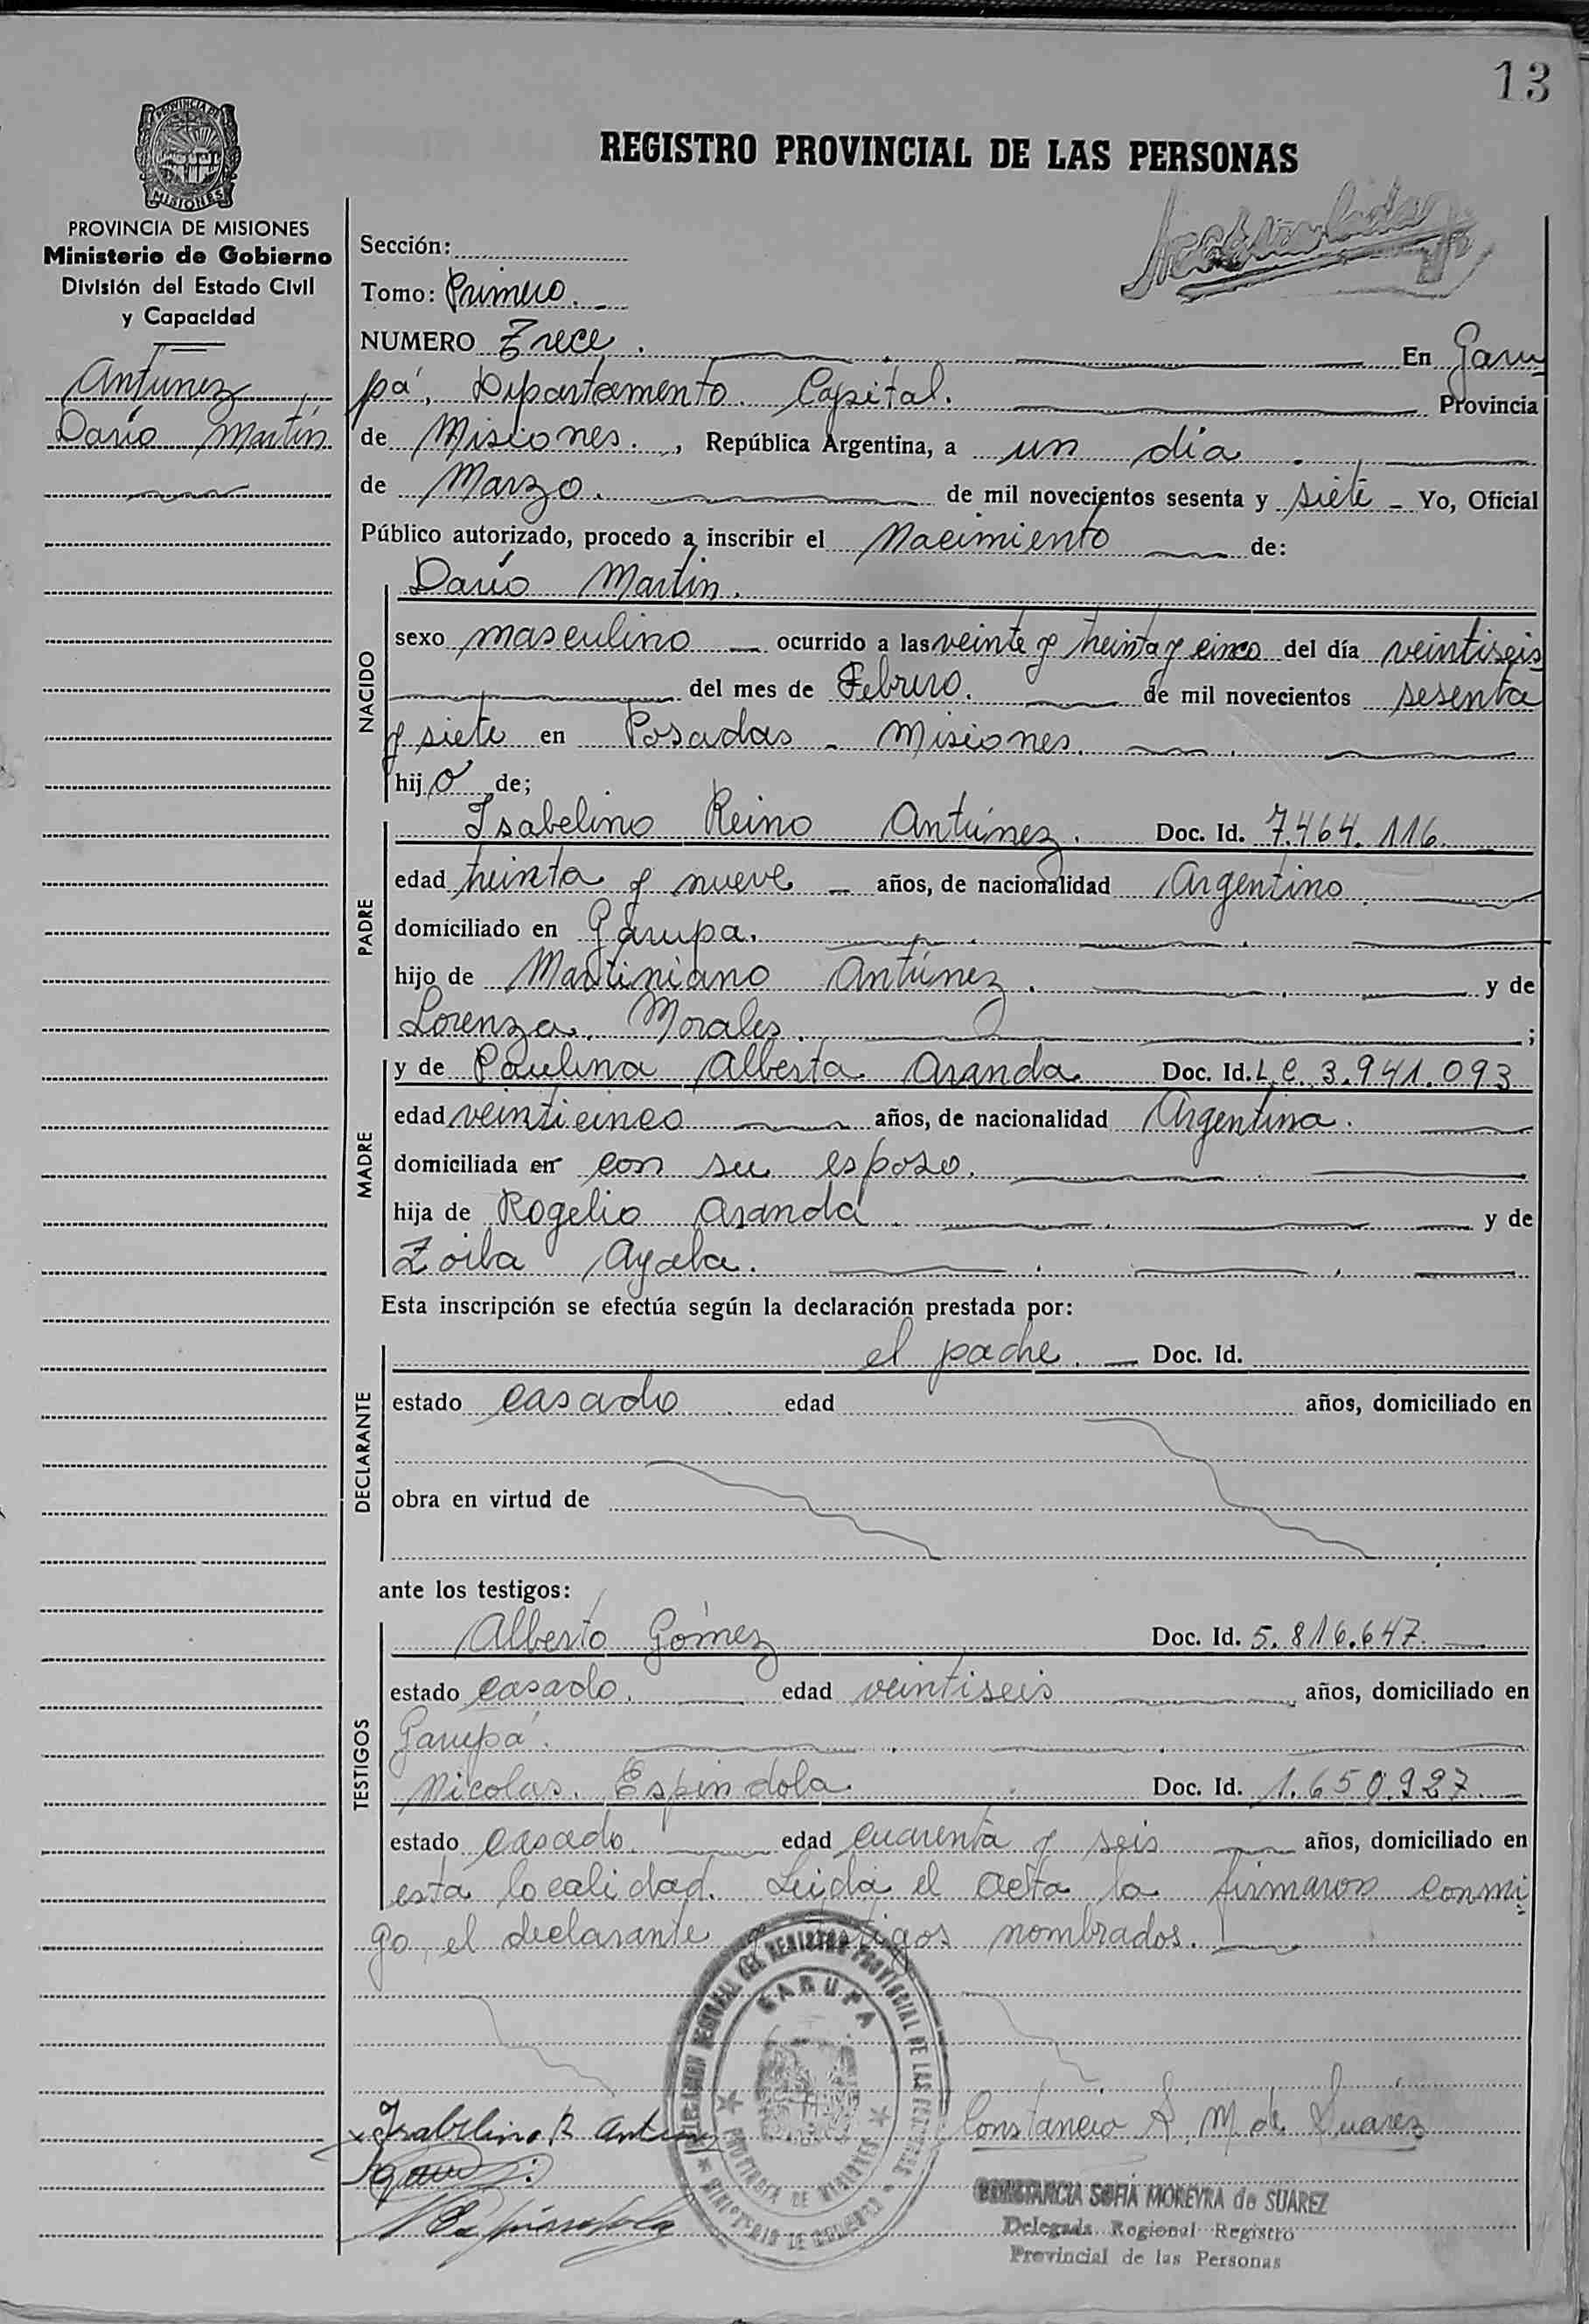 13
PROVINCIA DE MISIONES
PROVINCIA DE MISIONES
Ministerio de Gobierno
División del Estado Civil
y Capacidad
Antúnez
Darío Martín
REGISTRO PROVINCIAL DE LAS PERSONAS
Sección:
Tomo: Primero.
NUMERO Trece. En Garu
pá, Departamento Capital. Provincia
de Misiones., República Argentina, a un día
de Marzo. de mil novecientos sesenta y siete - Yo, Oficial
Público autorizado, procedo a inscribir el Nacimiento de:
NACIDO
Darío Martín.
sexo masculino ocurrido a las veinte y treinta y cinco del día veintiseis
del mes de Febrero. de mil novecientos sesenta
y siete en Posadas - Misiones.
hijo de;
PADRE
Isabelino Reino Antúnez. Doc. Id. 7.464.116.
edad treinta y nueve años, de nacionalidad Argentino
domiciliado en Garupa.
hijo de Martiniano Antúnez. y de
Lorenza Morales. ;
MADRE
y de Paulina Alberta Aranda Doc. Id. L.C. 3.941.093
edad veinticinco años, de nacionalidad Argentina.
domiciliada en con su esposo.
hija de Rogelio Aranda y de
Zoila Ayala.
Esta inscripción se efectúa según la declaración prestada por:
DECLARANTE
el padre. Doc. Id.
estado casado edad años, domiciliado en
obra en virtud de
ante los testigos:
TESTIGOS
Alberto Gómez Doc. Id. 5.816.647.
estado casado. edad veintiseis años, domiciliado en
Garupá.
Nicolas Espindola Doc. Id. 1.650.927
estado casado. edad cuarenta y seis años, domiciliado en
esta localidad. Leida el acta la firmaron conmi
go, el declarante y testigos nombrados.
GARUPA
PROVINCIA DE MISIONES
Isabelino R Antunez
Constancia S. M. de Suárez
N Espindola
CONSTANCIA SOFIA MOREYRA de SUAREZ
Delegada Regional Registro
Provincial de las Personas